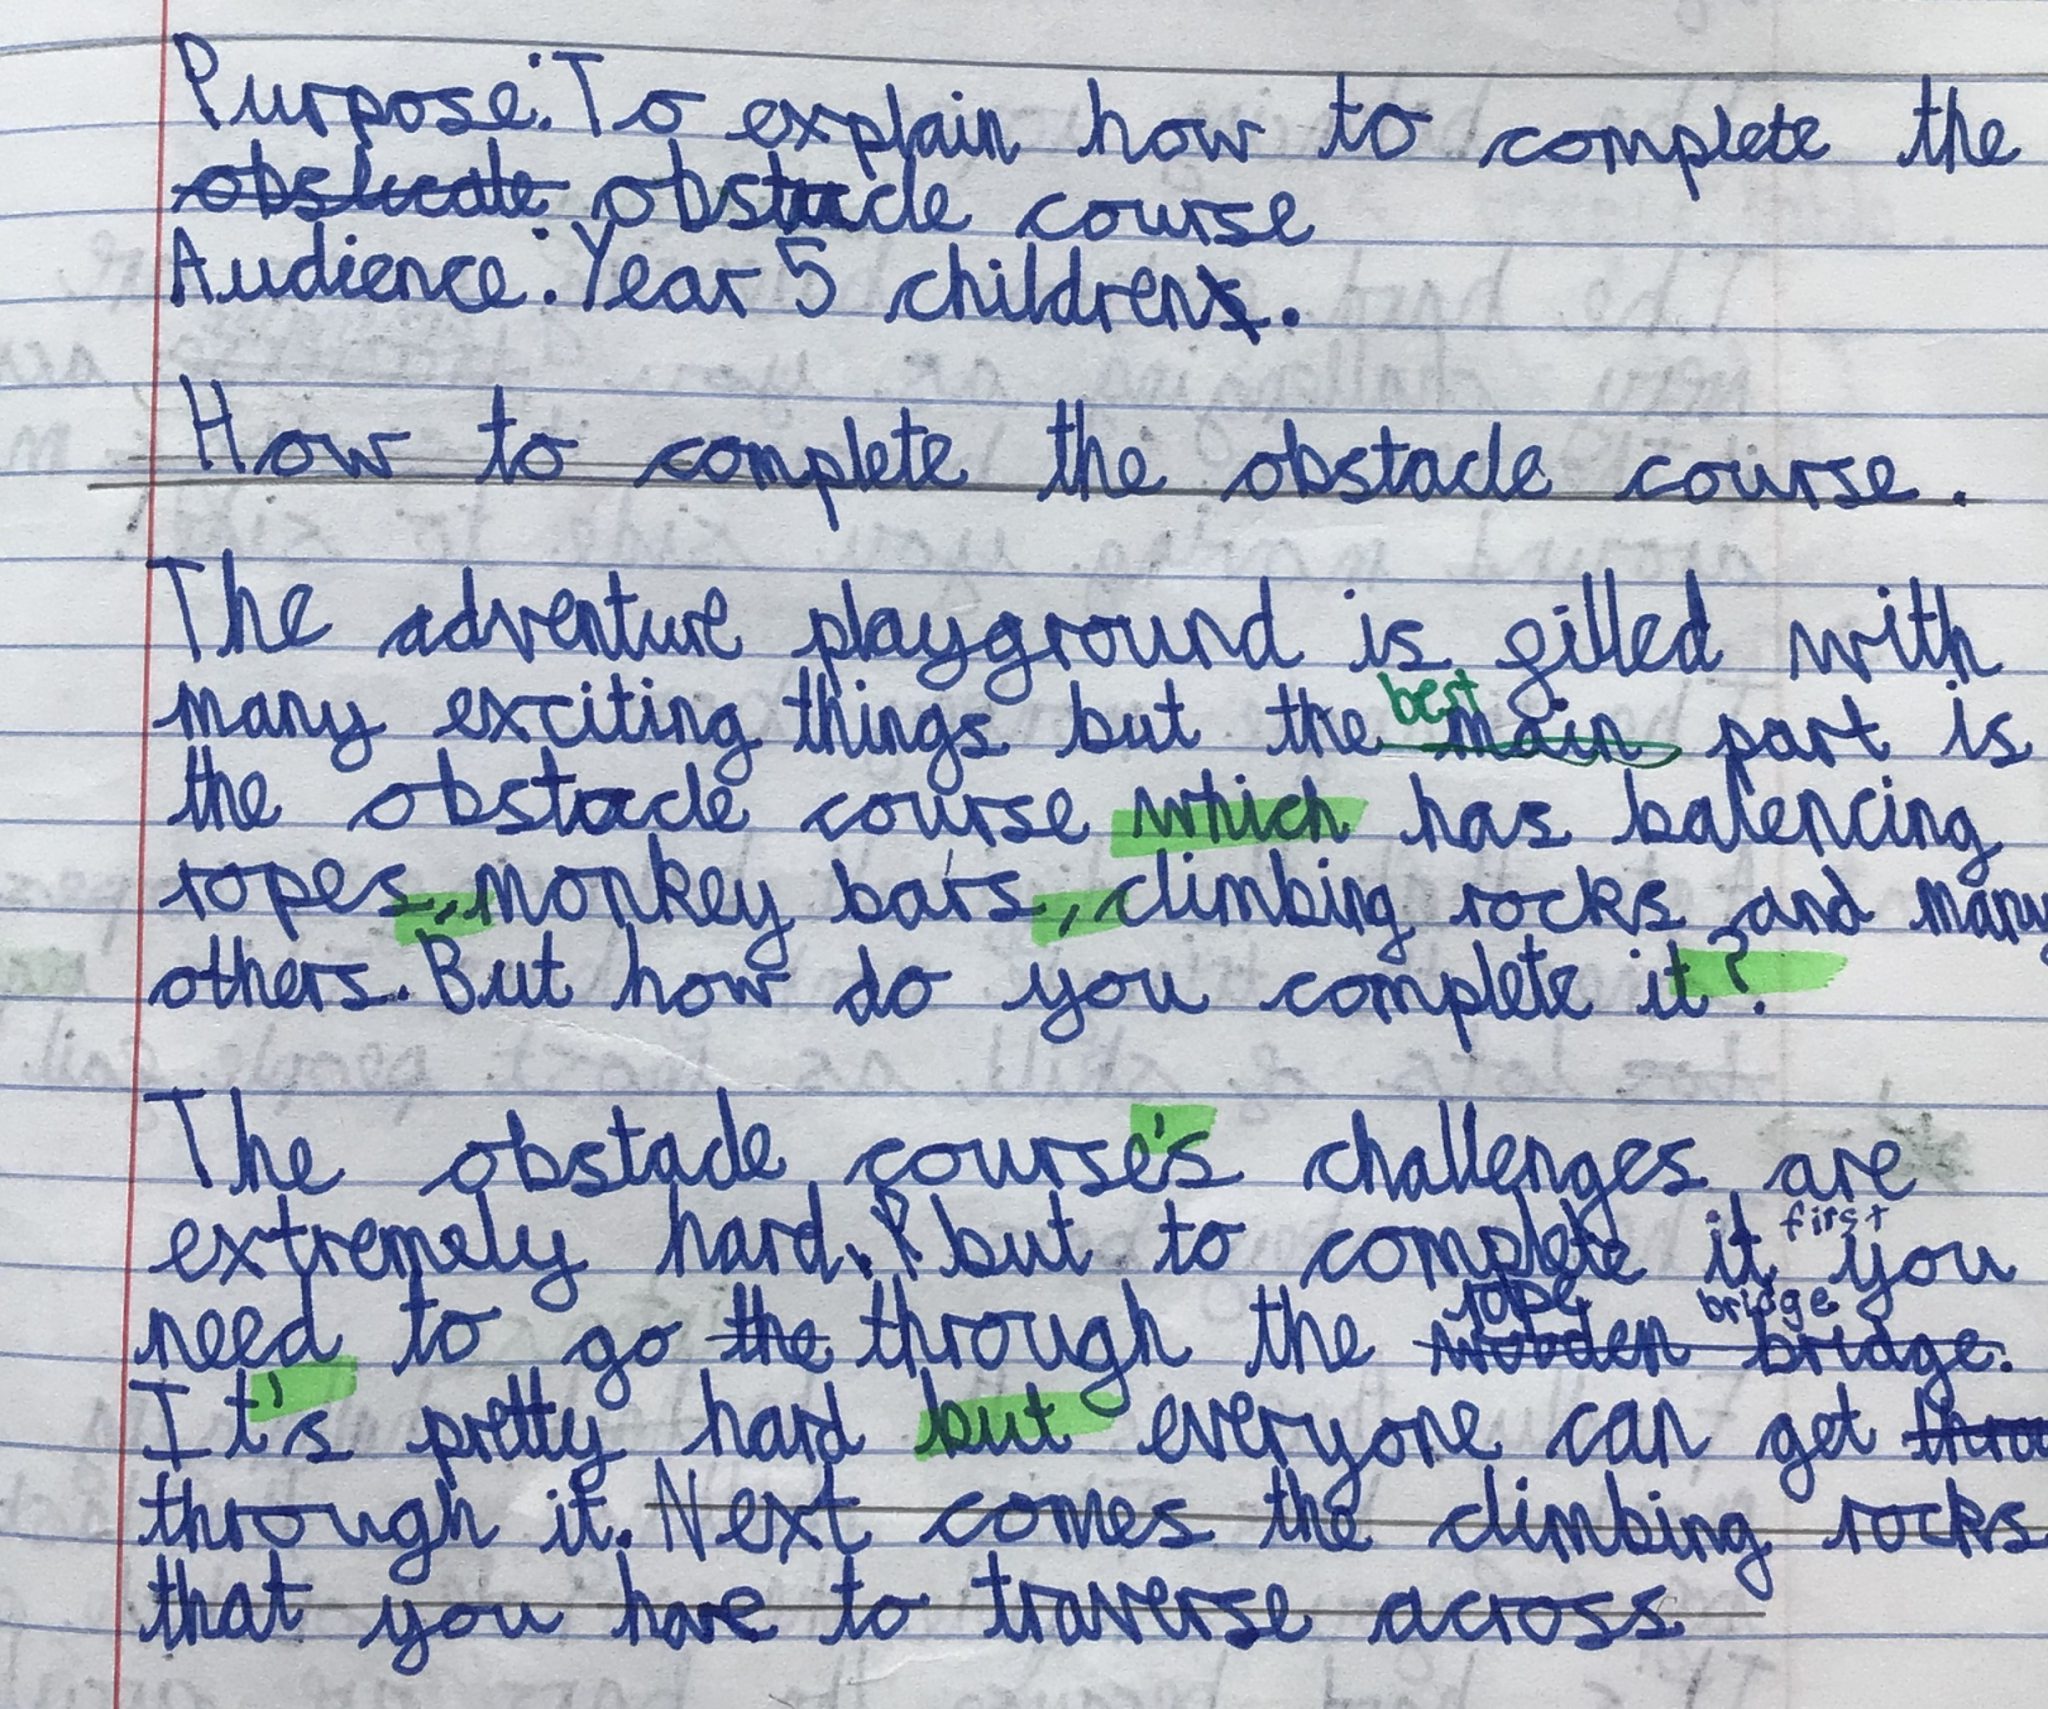 Purpose: To explain how to complete the
obstacle course
Audience: Year 5 children.
How to complete the obstacle course.
The adventure playground is filled with
many exciting things but the best part is
the obstacle course which has balencing
ropes, monkey bars, climbing rocks and many
others. But how do you complete it?
The obstacle course's challenges are
extremely hard, but to complete it first you
need to go through the rope bridge.
It's pretty hard but everyone can get
through it. Next comes the climbing rocks
that you have to traverse across